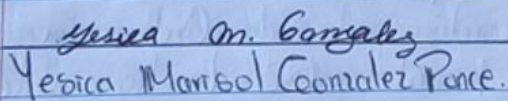 Yesica M. Gonzalez
Yesica Marisol Gonzalez Ponce.